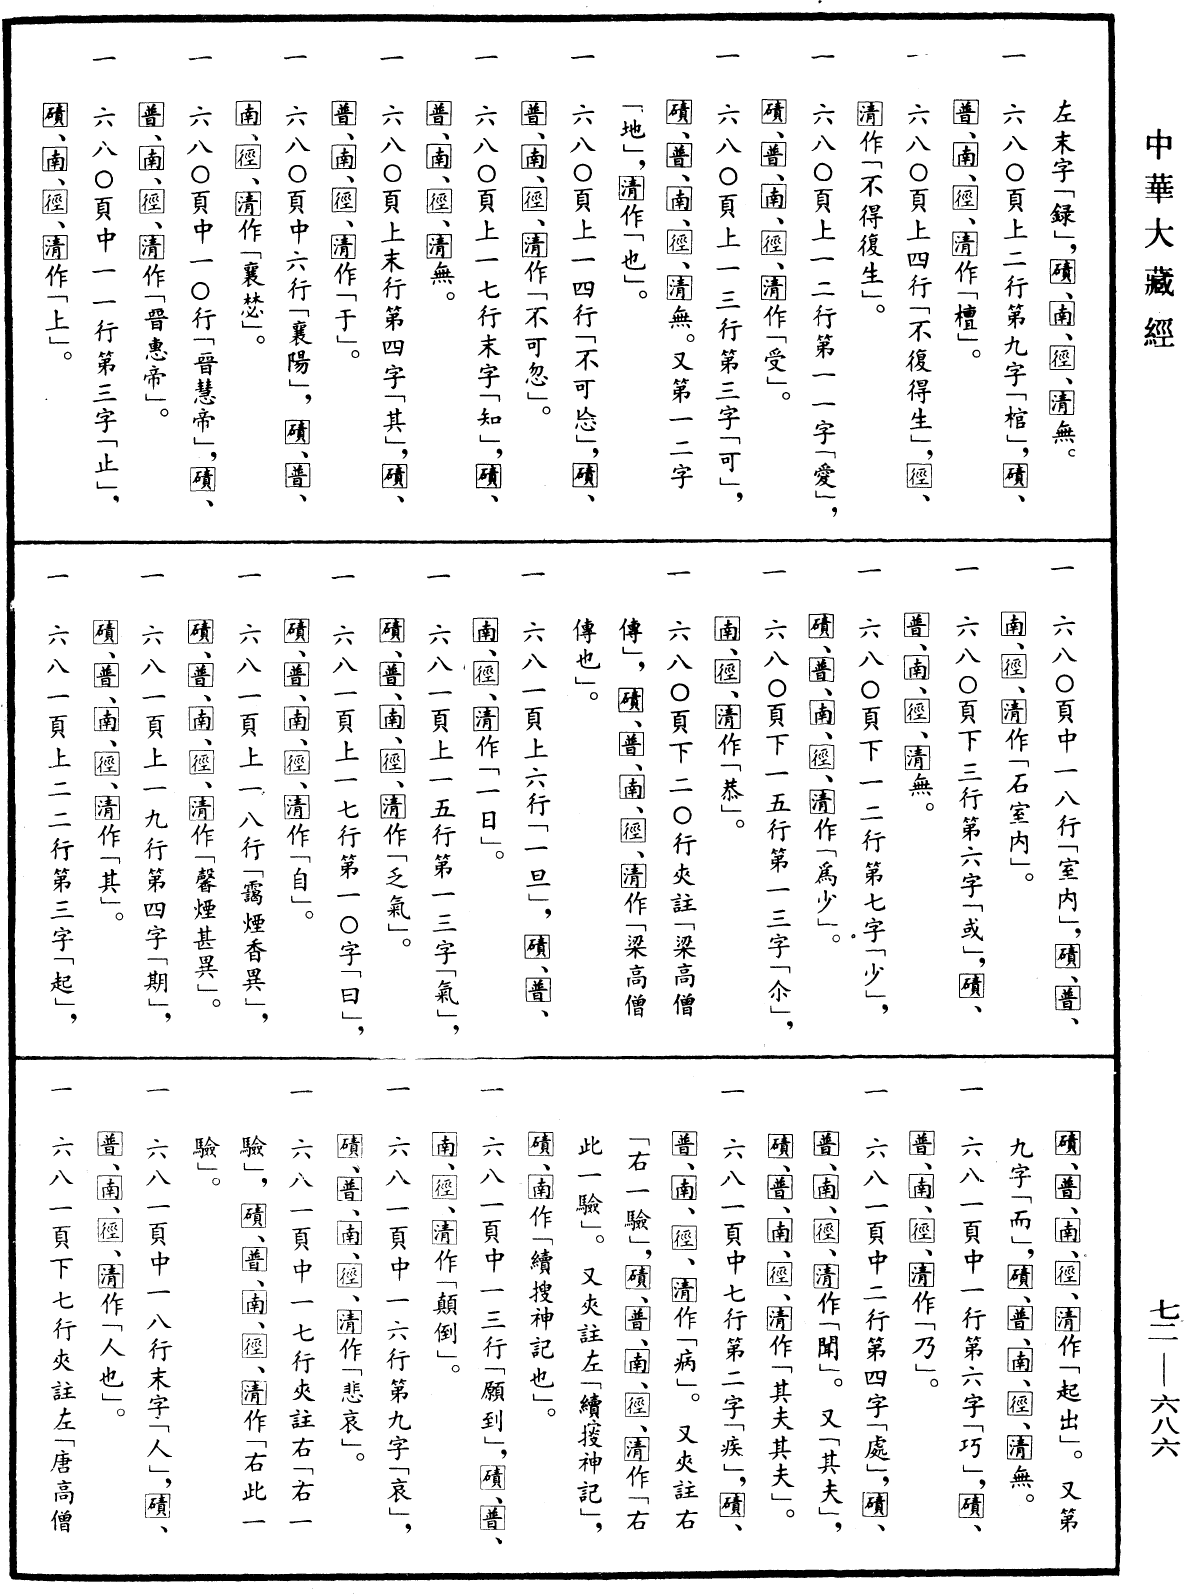 中華大藏經
左末字「録」，磧、南、徑、清無。
一 六八〇頁上二行第九字「棺」，磧、
普、南、徑、清作「檀」。
一 六八〇頁上四行「不復得生」，徑、
清作「不得復生」。
一 六八〇頁上一二行第一一字「愛」，
磧、普、南、徑、清作「受」。
一 六八〇頁上一三行第三字「可」，
磧、普、南、徑、清無。又第一二字
「地」，清作「也」。
一 六八〇頁上一四行「不可㤀」，磧、
普、南、徑、清作「不可忽」。
一 六八〇頁上一七行末字「知」，磧、
普、南、徑、清無。
一 六八〇頁上末行第四字「其」，磧、
普、南、徑、清作「于」。
一 六八〇頁中六行「襄陽」，磧、普、
南、徑、清作「襄楚」。
一 六八〇頁中一〇行「晉慧帝」，磧、
普、南、徑、清作「晉惠帝」。
一 六八〇頁中一一行第三字「止」，
磧、南、徑、清作「上」。
一 六八〇頁中一八行「室内」，磧、普、
南、徑、清作「石室内」。
一 六八〇頁下三行第六字「或」，磧、
普、南、徑、清無。
一 六八〇頁下一二行第七字「少」，
磧、普、南、徑、清作「爲少」。
一 六八〇頁下一五行第一三字「尒」，
南、徑、清作「恭」。
一 六八〇頁下二〇行夾註「梁高僧
傳」，磧、普、南、徑、清作「梁高僧
傳也」。
一 六八一頁上六行「一旦」，磧、普、
南、徑、清作「一日」。
一 六八一頁上一五行第一三字「氣」，
磧、普、南、徑、清作「乏氣」。
一 六八一頁上一七行第一〇字「曰」，
磧、普、南、徑、清作「自」。
一 六八一頁上一八行「靄煙香異」，
磧、普、南、徑、清作「馨煙甚異」。
一 六八一頁上一九行第四字「期」，
磧、普、南、徑、清作「其」。
一 六八一頁上二二行第三字「起」，
磧、普、南、徑、清作「起出」。又第
九字「而」，磧、普、南、徑、清無。
一 六八一頁中一行第六字「巧」，磧、
普、南、徑、清作「乃」。
一 六八一頁中二行第四字「處」，磧、
普、南、徑、清作「聞」。又「其夫」，
磧、普、南、徑、清作「其夫其夫」。
一 六八一頁中七行第二字「疾」，磧、
普、南、徑、清作「病」。又夾註右
「右一驗」，磧、普、南、徑、清作「右
此一驗」。又夾註左「續搜神記」，
磧、南作「續搜神記也」。
一 六八一頁中一三行「願到」，磧、普、
南、徑、清作「顛倒」。
一 六八一頁中一六行第九字「哀」，
磧、普、南、徑、清作「悲哀」。
一 六八一頁中一七行夾註右「右一
驗」，磧、普、南、徑、清作「右此一
驗」。
一 六八一頁中一八行末字「人」，磧、
普、南、徑、清作「人也」。
一 六八一頁下七行夾註左「唐高僧
七二—六八六